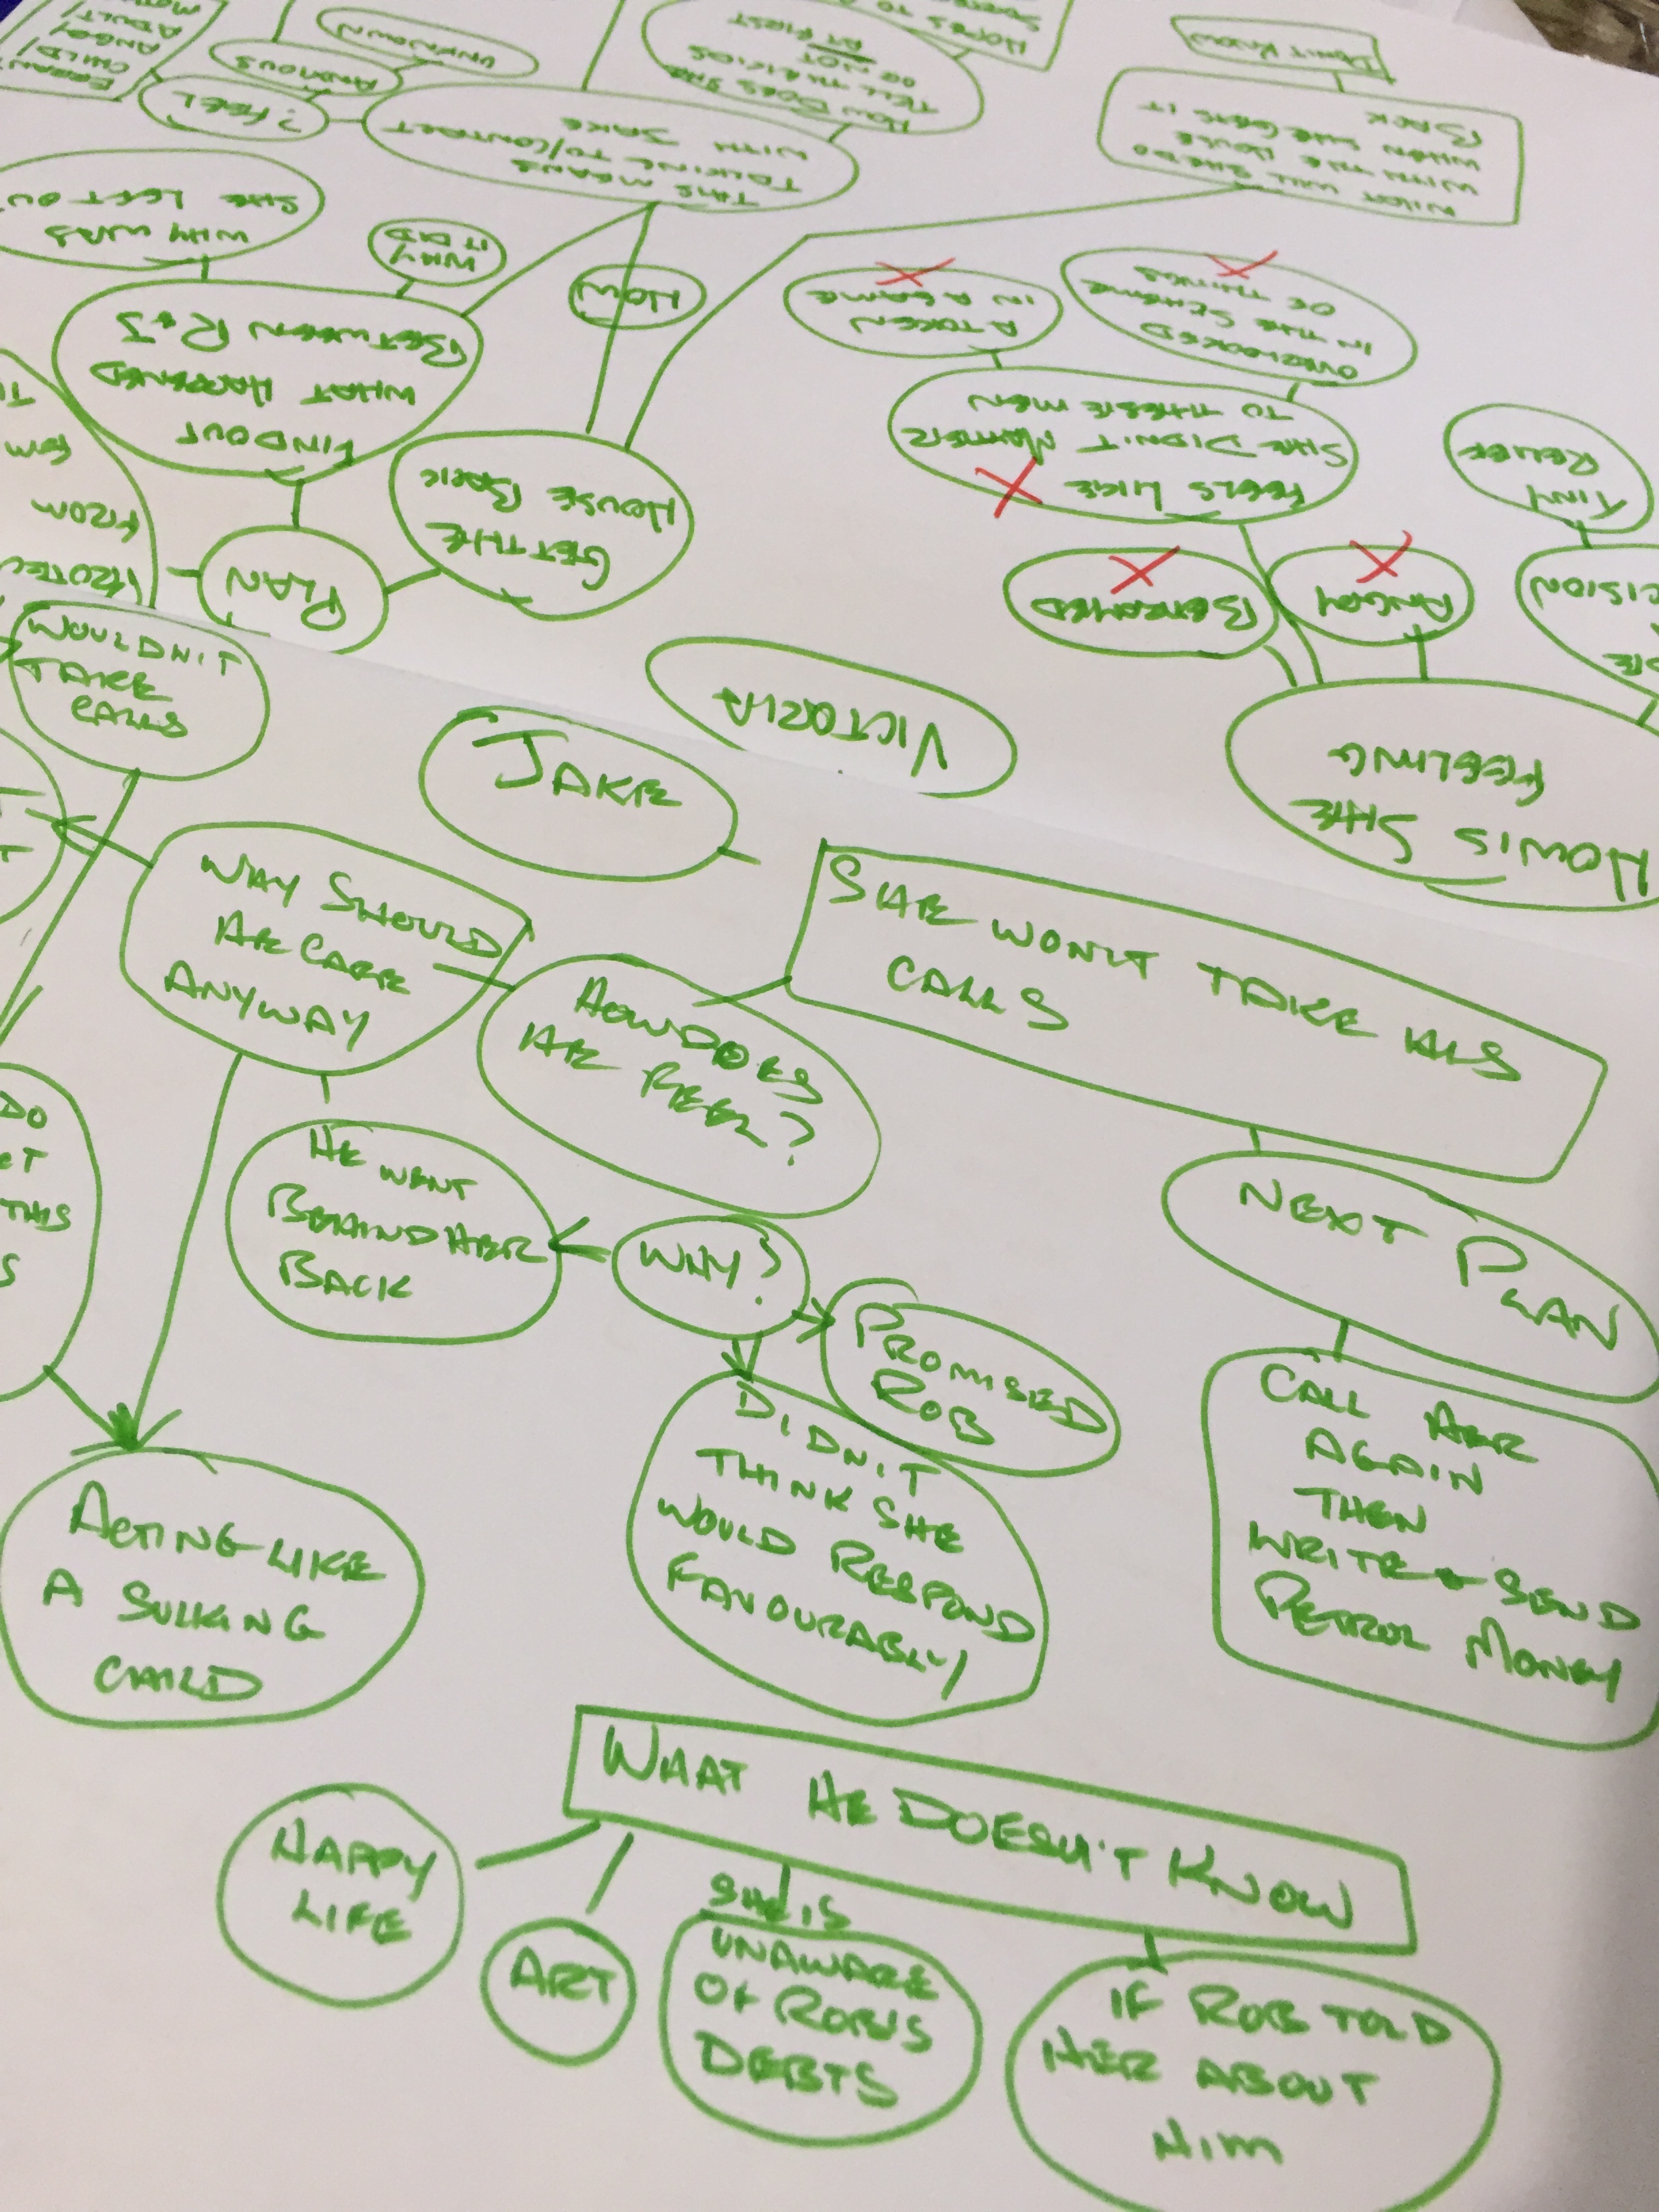 JAKE
SHE WON'T TAKE HIS
CALLS
HOW DOES
HE FEEL?
WHY SHOULD
HE CARE
ANYWAY
WOULDN'T
TAKE
CALLS
DO
THIS
S
HE WENT
BEHIND HER
BACK
WHY?
PROMISED
ROB
DIDN'T
THINK SHE
WOULD RESPOND
FAVOURABLY
NEXT PLAN
CALL HER
AGAIN
THEN
WRITE + SEND
PETROL MONEY
ACTING LIKE
A SULKING
CHILD
WHAT HE DOESN'T KNOW
HAPPY
LIFE
ART
SHE IS
UNAWARE
OF ROB'S
DEBTS
IF ROB TOLD
HER ABOUT
HIM
VICTORIA
HOW IS SHE
FEELING
ANGRY
BETRAYED
FEELS LIKE
SHE DIDN'T MATTER
TO THESE MEN
A TOKEN
IN A GAME
OVERLOOKED
IN THE SCHEME
OF THINGS
TINY
RELIEF
CISION
PLAN
GET THE
HOUSE BACK
HOW
WHAT WILL SHE DO
WITH THE HOUSE
WHEN SHE GETS IT
BACK
DON'T KNOW
FIND OUT
WHAT HAPPENED
BETWEEN R + J
WHY
IT DID
WHY WAS
SHE LEFT OU
THIS MEANS
TALKING TO/CONTACT
WITH JAKE
? FEEL
ANXIOUS
UNKNOWN
HOW DOES SHE
TELL THE KIDS
OR NOT
AT FIRST
HOPES TO
CHILD/
ANGRY
ADULT/
FROM